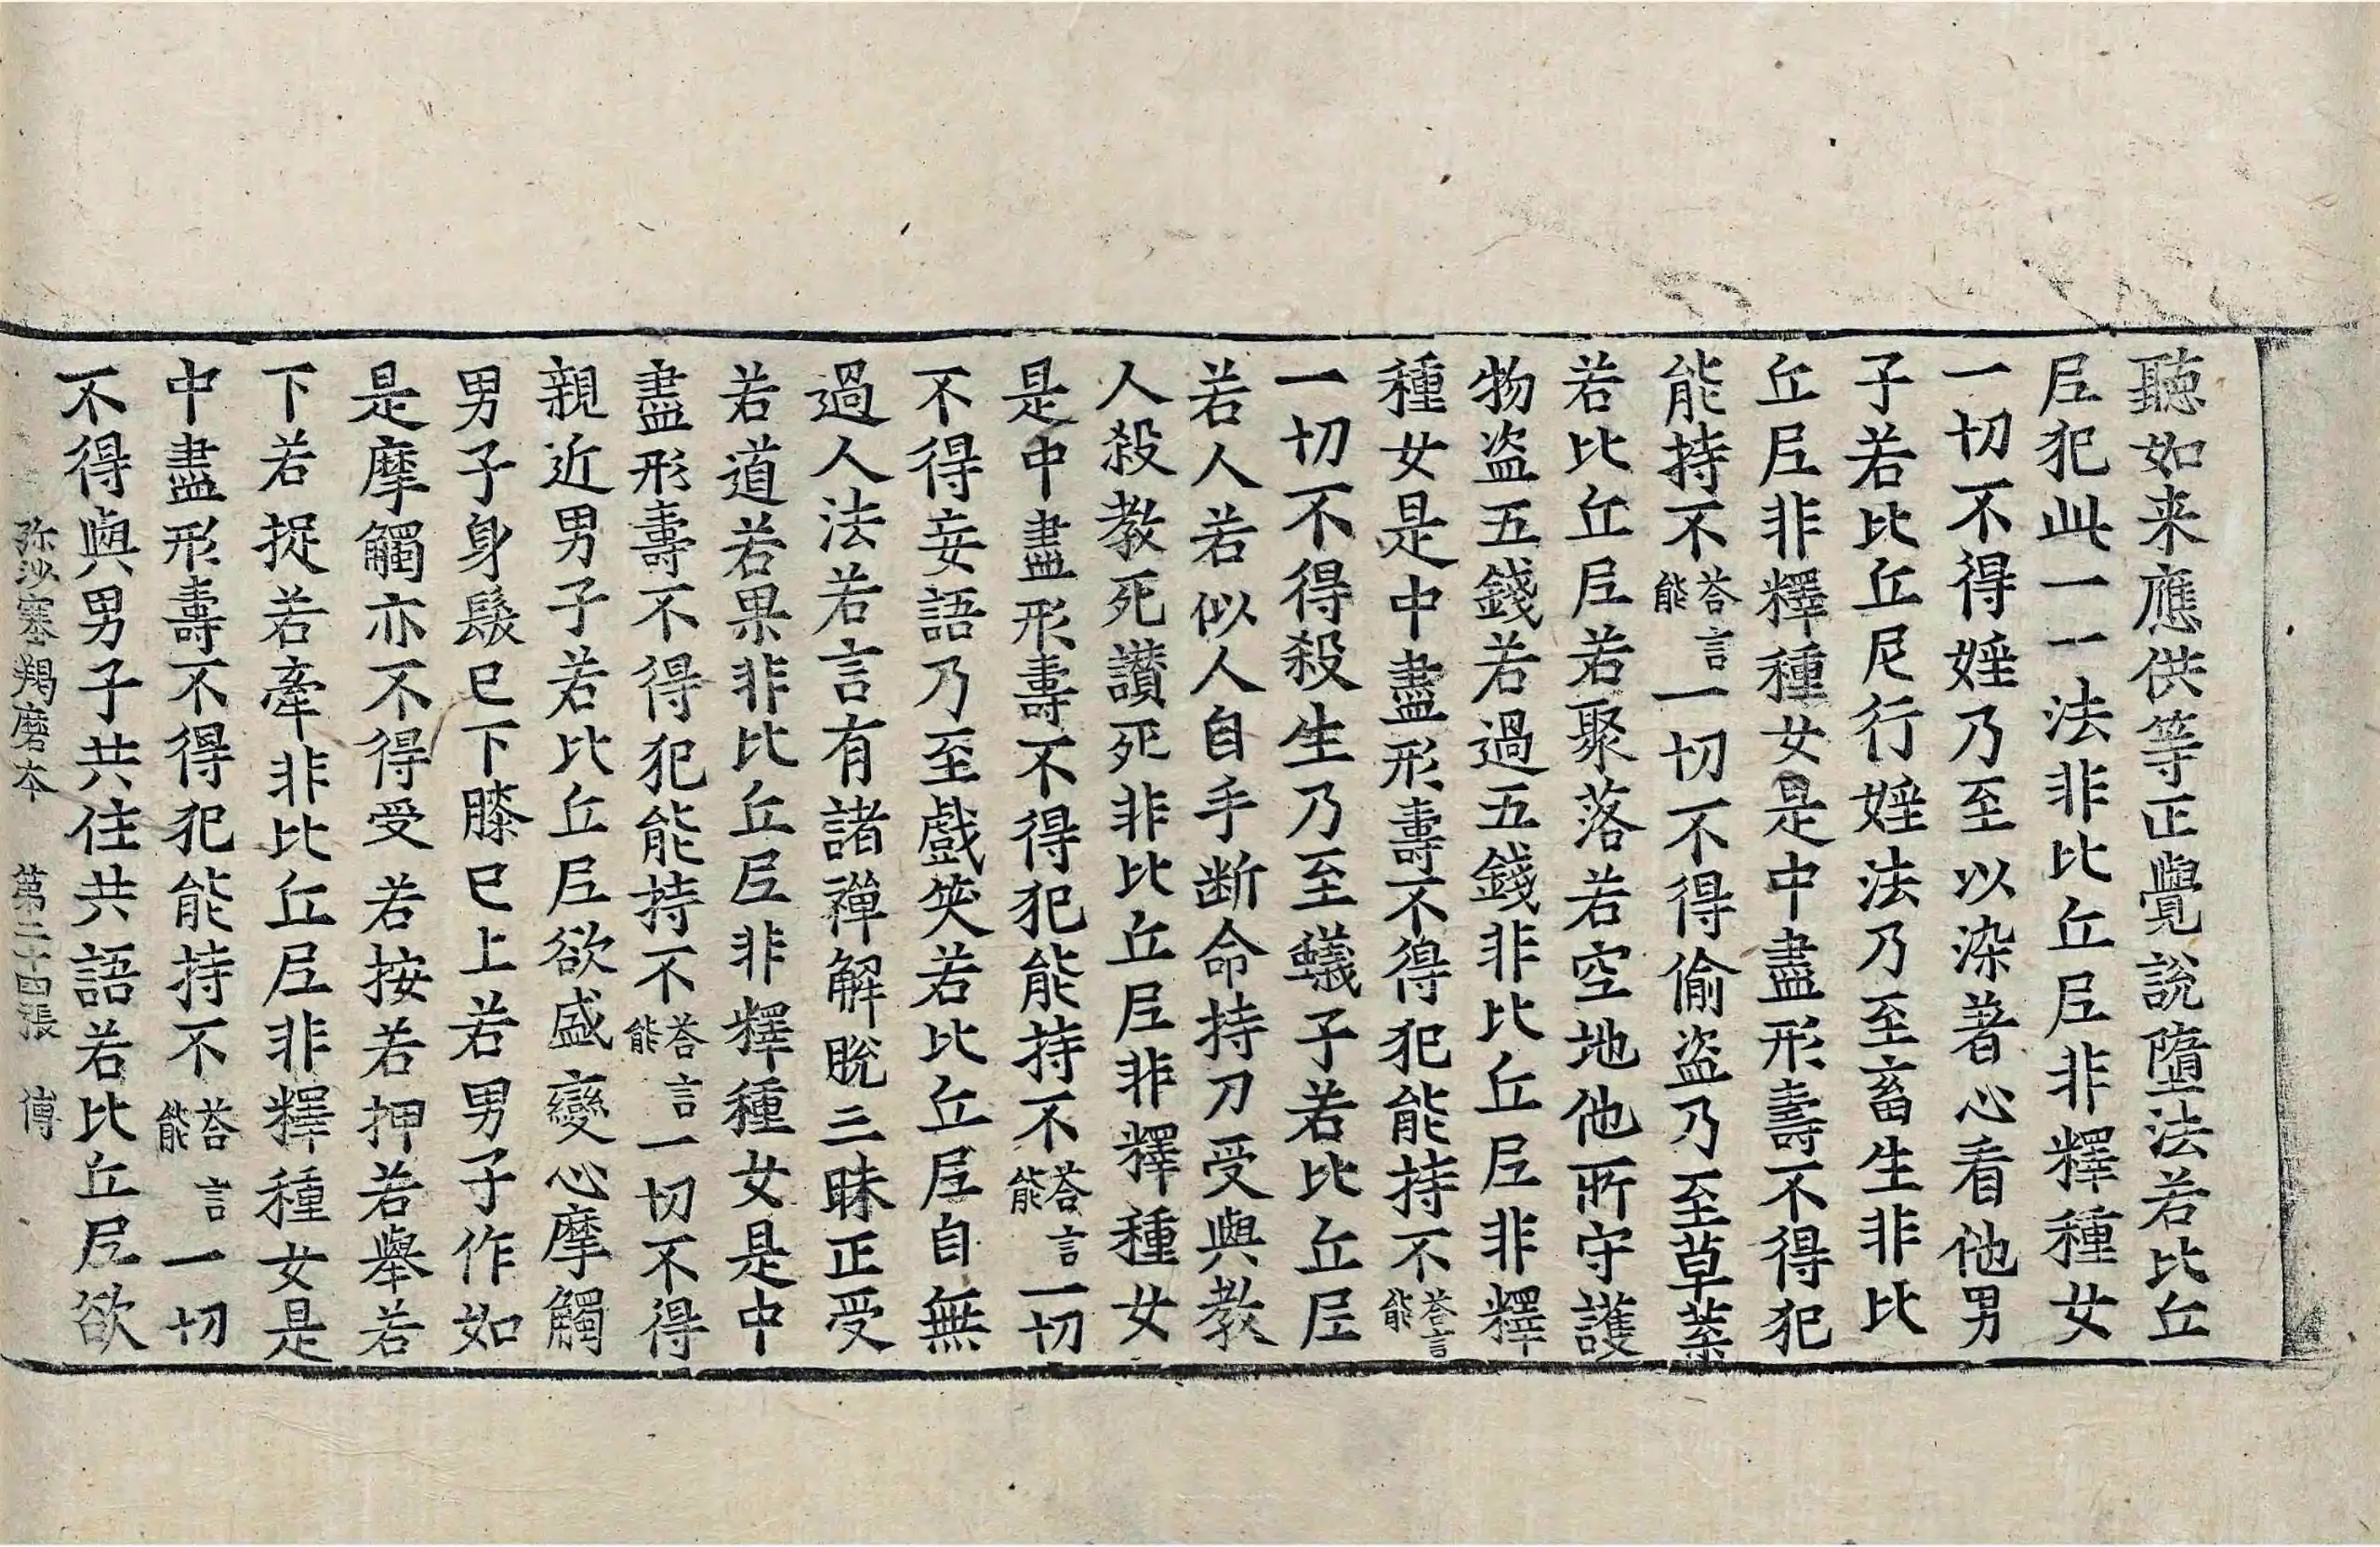 聽如来應供等正覺說墮法若比丘
尼犯此一一法非比丘尼非釋種女
一切不得婬乃至以染著心看他男
子若比丘尼行婬法乃至畜生非比
丘尼非釋種女是中盡形壽不得犯
能持不荅言能一切不得偷盗乃至草葉
若比丘尼若聚落若空地他所守護
物盗五錢若過五錢非比丘尼非釋
種女是中盡形壽不得犯能持不荅言能
一切不得殺生乃至蟻子若比丘尼
若人若似人自手断命持刀受與教
人殺教死讃死非比丘尼非釋種女
是中盡形壽不得犯能持不荅言能一切
不得妄語乃至戲笑若比丘尼自無
過人法若言有諸禪解脫三昧正受
若道若果非比丘尼非釋種女是中
盡形壽不得犯能持不荅言能一切不得
親近男子若比丘尼欲盛變心摩觸
男子身髮已下膝已上若男子作如
是摩觸亦不得受若按若押若舉若
下若捉若牽非比丘尼非釋種女是
中盡形壽不得犯能持不荅言能一切
不得與男子共住共語若比丘尼欲
弥沙塞羯磨本 第二十四張 傳